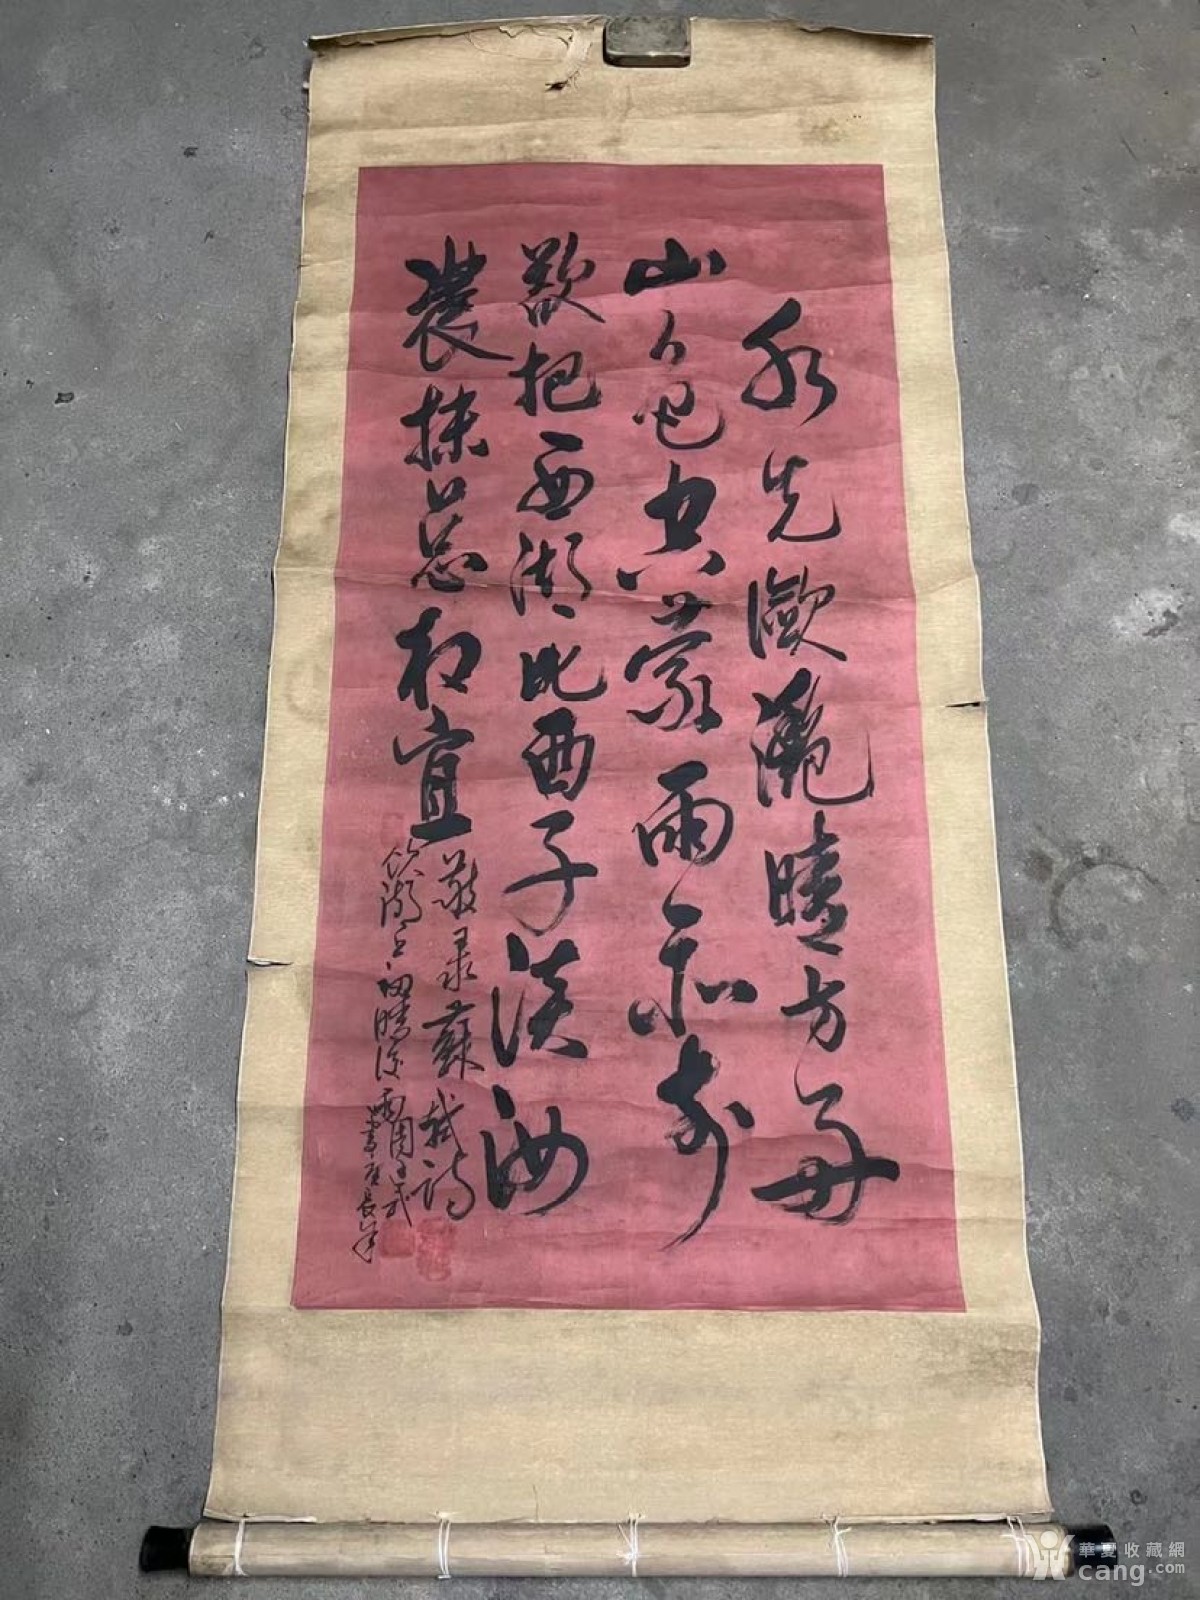 水光瀲灩晴方好
山色空蒙雨亦奇
欲把西湖比西子淡妝
農抹总相宜
敬录蘇軾詩
飲湖上初晴後雨
華夏收藏網
cang.com